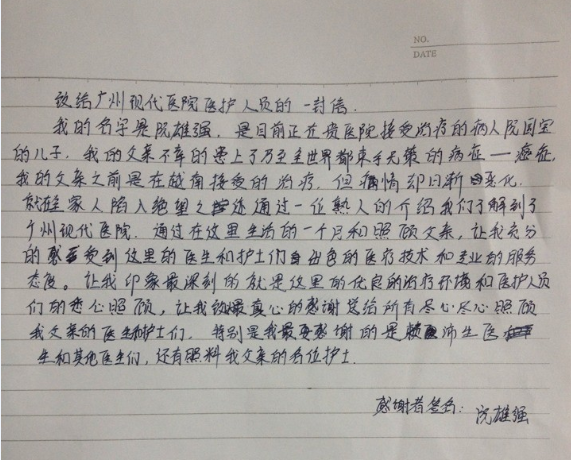 NO.
DATE
致给广州现代医院医护人员的一封信.
我的名字是阮雄强, 是目前正在贵医院接受治疗的病人阮国宝
的儿子. 我的父亲不幸的患上了乃至全世界都束手无策的病症——癌症.
我的父亲之前是在越南接受的治疗. 但病情却日新恶化.
就在家人陷入绝望之 通过一位熟人的介绍我们了解到了
广州现代医院. 通过在这里生活的一个月和照顾父亲, 让我充分
的感受到这里的医生和护士们出色的医疗技术和专业的服务
态度。让我印象最深刻的就是这里的优良的治疗环境和医护人员
们的悉心照顾, 让我致最真心的感谢送给所有尽心尽心照顾
我父亲的医生和护士们. 特别是我最要感谢的是 沛生医
生和其他医生们, 还有照料我父亲的各位护士.
感谢者签名: 阮雄强